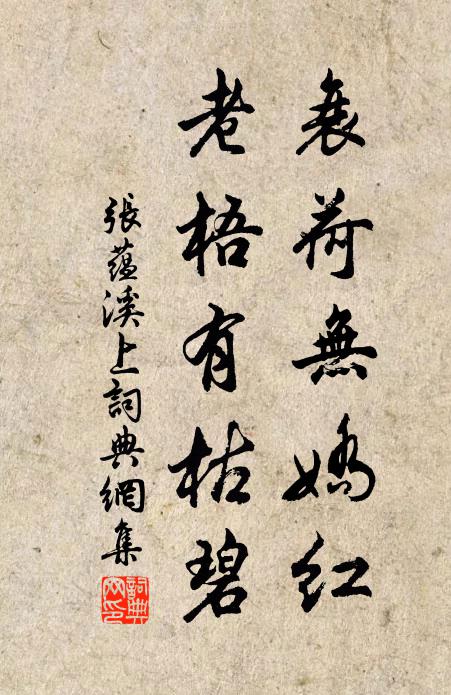 衰荷無嬌紅
老梧有枯碧
張蘊溪上詞典網集
詞典網印